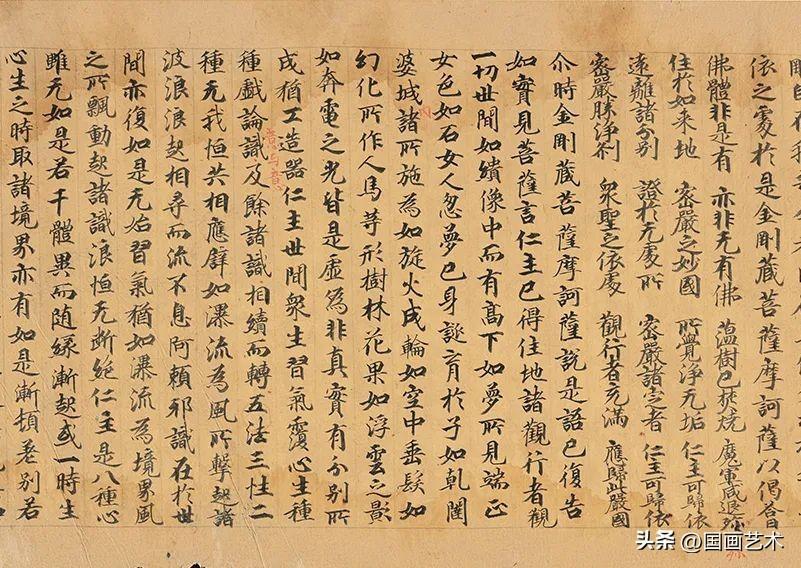 依之處於是金剛藏菩薩摩訶薩以偈答曰
佛體非是有 亦非无有佛 薀樹已焚燒 魔軍咸退
住於如来地 密嚴之妙國 所覺淨无垢 仁主可歸依
遠離諸分別 證於无處所 密嚴諸定者 仁主可歸依
密嚴勝淨剎 衆聖之依處 觀行者充滿 應歸此嚴國
尒時金剛藏菩薩摩訶薩說是語已復告
如實見菩薩言仁主已得住地諸觀行者觀
一切世間如繢像中而有髙下如夢所見端正
女色如石女人忽夢已身誕育於子如乹闥
婆城諸所施為如旋火成輪如空中垂髮如
幻化所作人馬等形樹林花果如浮雲之影
如奔電之光皆是虛為非真實有分別所
成猶工造器仁主世間衆生習氣覆心生種
種戲論識及餘諸識相續而轉五法三性二
種无我恒共相應譬如瀑流為風所擊起諸
波浪浪起相尋而流不息阿賴耶識在於世
間亦復如是无始習氣猶如瀑流為境界風
之所飄動起諸識浪恒无断絕仁主是八種心
雖无如是若干體異而随緣漸起或一時生
心生之時取諸境界亦有如是漸頓差別若
头条 @国画艺术